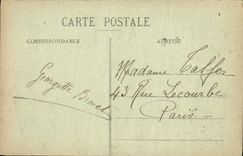 CARTE POSTALE
CORRESPONDANCE
ADRESSE
Georgette
Madame
43 Rue Lecourbe
Paris